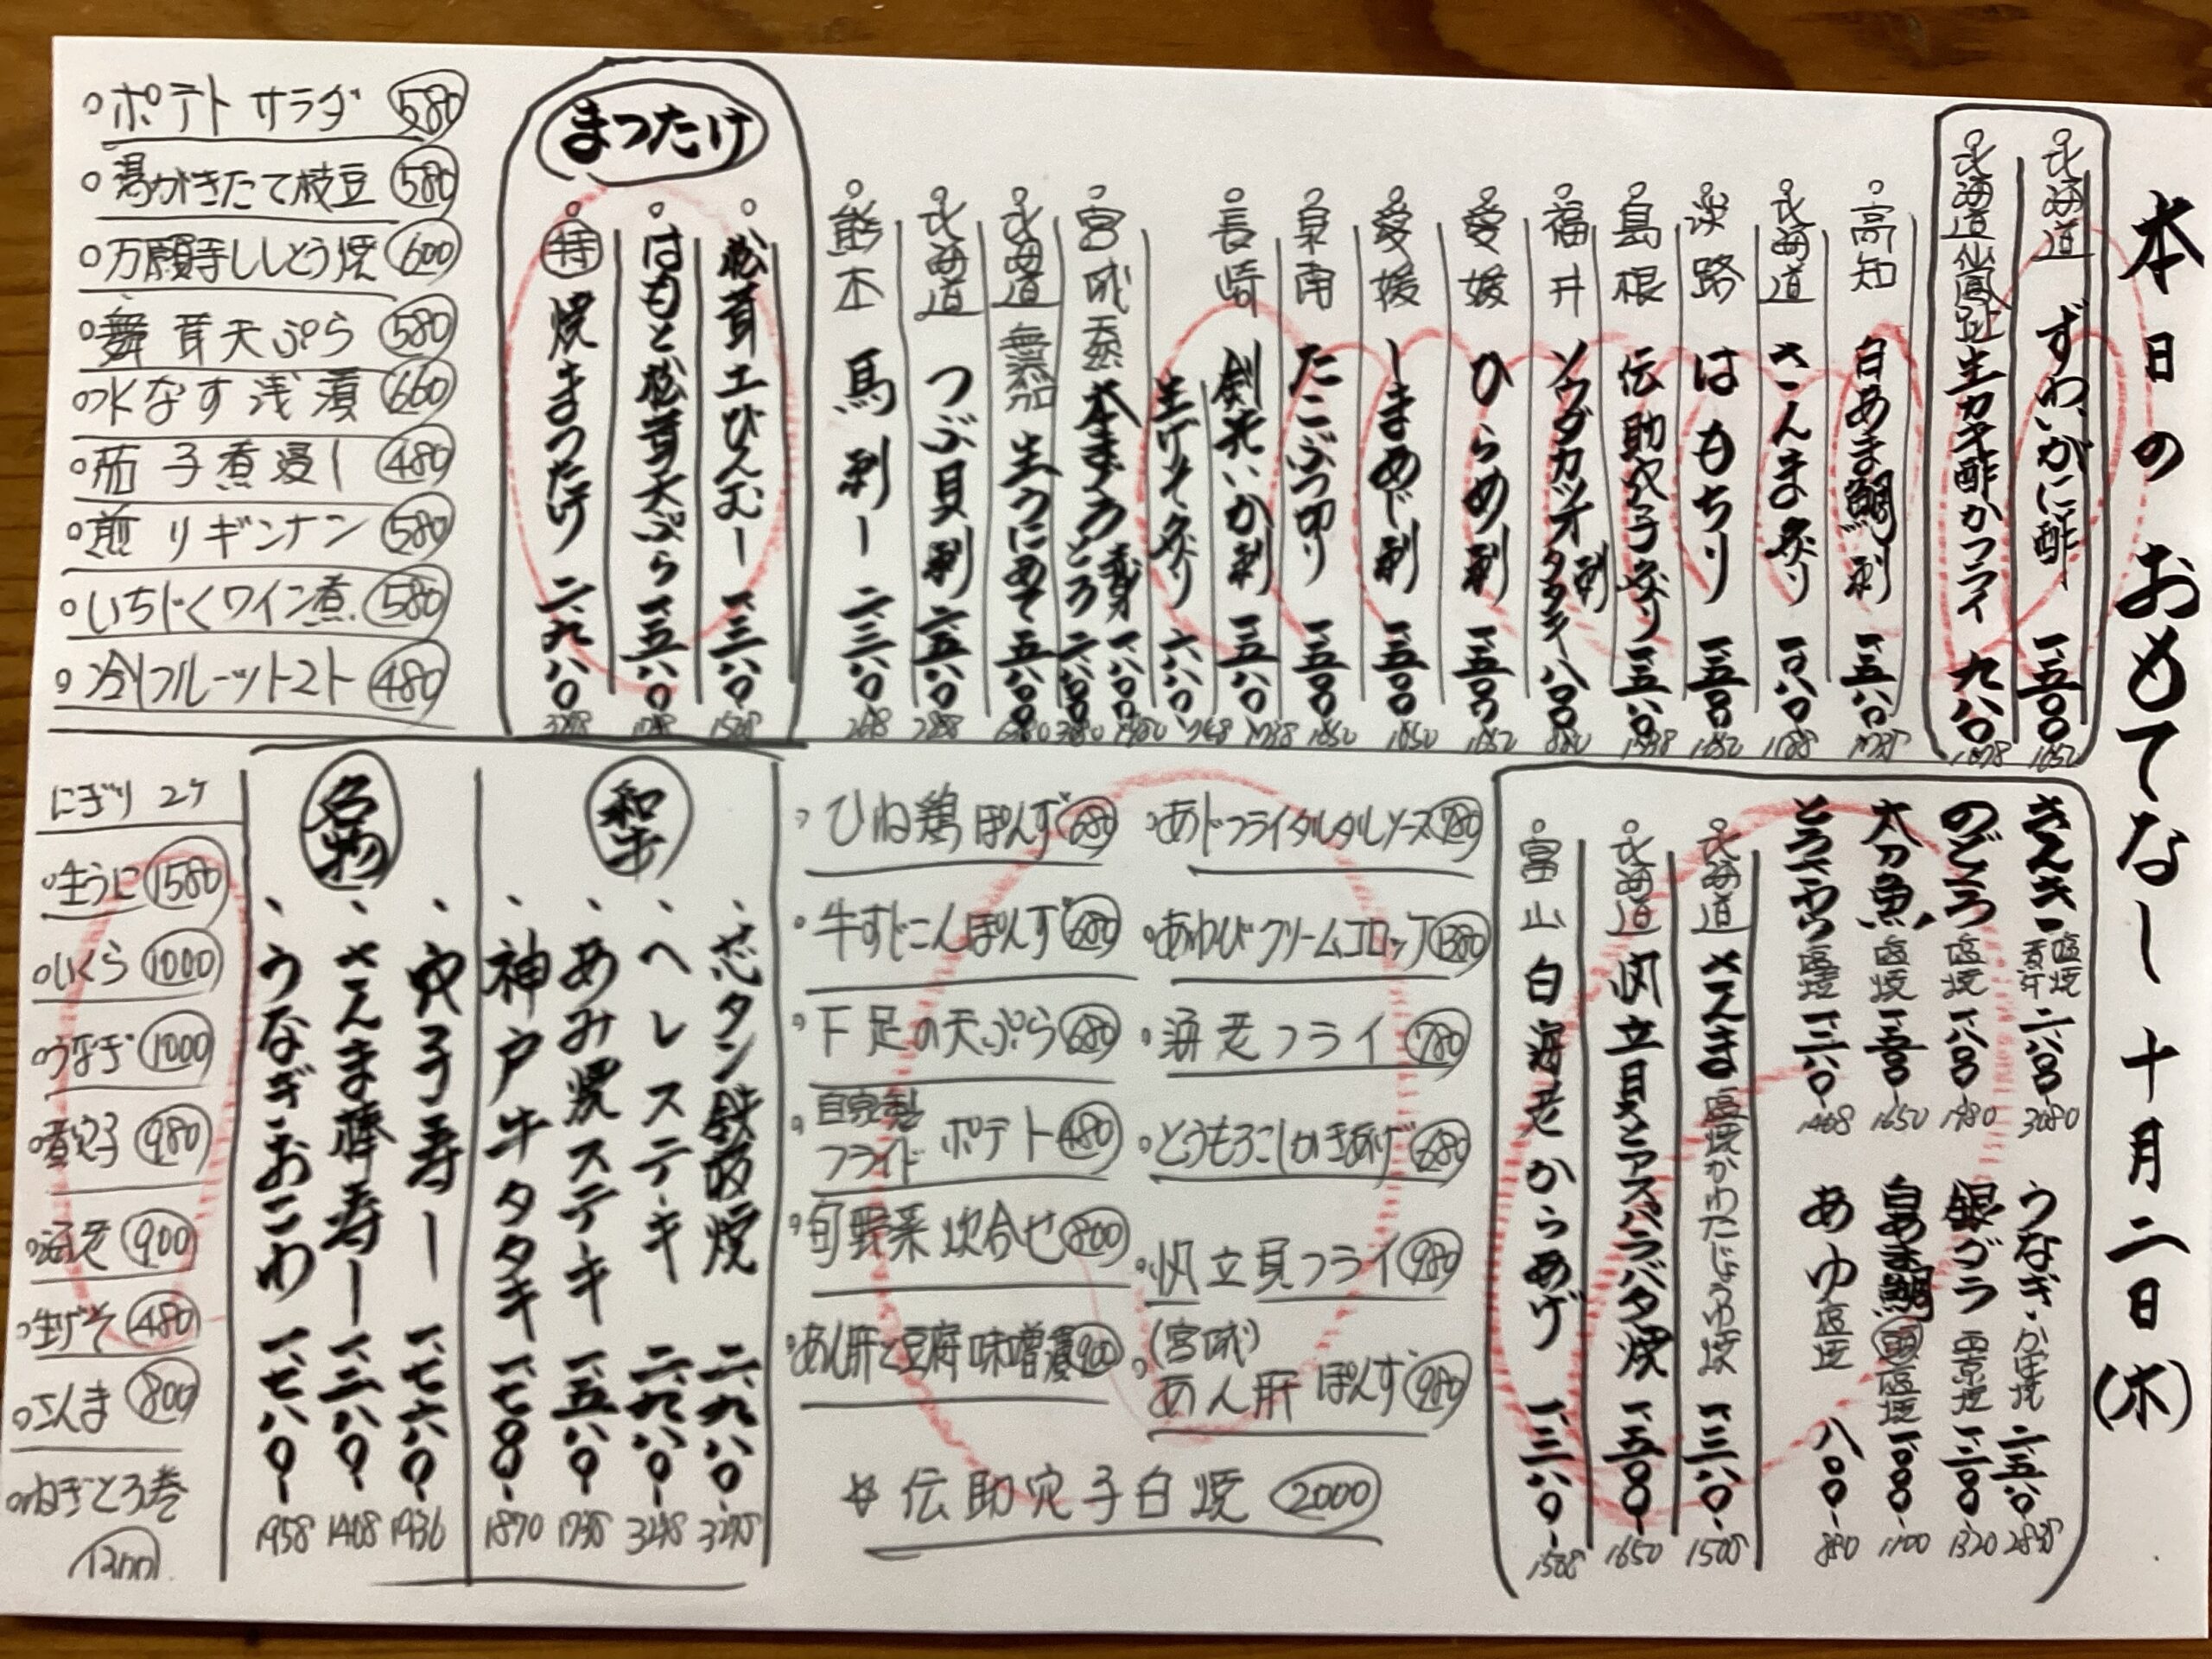 本日のおもてなし 十月二日(木)
北海道 ずわいがに酢 一、五〇〇 1650
北海道仙鳳趾 生カキ酢かフライ 九八〇 1078
高知 白あま鯛刺 一、五八〇 1738
北海道 さんま炙り 一、〇八〇 1188
淡路 はもちり 一、五〇〇 1650
島根 伝助穴子炙り 一、五八〇 1738
福井 ソウダカツオ刺 タタキ 八〇〇 880
愛媛 ひらめ刺 一、五〇〇 1650
愛媛 しまあじ刺 一、五〇〇 1650
泉南 たこぶつ切り 一、五〇〇 1650
長崎 剣先いか刺 一、五八〇 1738
生げそ炙り 六八〇 748
宮城 天然 本まぐろ 赤身 一、八〇〇 1980
とろ 二、八〇〇 3080
北海道 無添加 生うにあて 五、八〇〇 6380
北海道 つぶ貝刺 二、五八〇 2838
熊本 馬刺し 二、三八〇 2618
まつたけ
松茸土びんむし 一、三八〇 1518
はもと松茸天ぷら 一、五八〇 1738
特 焼まつたけ 二、九八〇 3278
ポテトサラダ 580
湯がきたて枝豆 580
万願寺ししとう焼 600
舞茸天ぷら 580
水なす浅漬 660
茄子煮浸し 480
煎りギンナン 580
いちじくワイン煮 580
冷しフルーツトマト 480
きんき 塩焼 煮汁 二、八〇〇 3080
のどぐろ 塩焼 一、八〇〇 1980
太刀魚 塩焼 一、五〇〇 1650
とろさわら 塩焼 一、二八〇 1408
うなぎ・かば焼 二、五八〇 2838
銀ダラ 西京焼 一、二〇〇 1320
白あま鯛 頭 塩焼 一、〇〇〇 1100
あゆ 塩焼 八〇〇 880
北海道 さんま 塩焼かわたじょうゆ焼 一、三八〇 1508
北海道 帆立貝とアスパラバタ焼 一、五〇〇 1650
富山 白海老からあげ 一、三八〇 1508
あじフライタルタルソース 780
あわびクリームコロッケ 1380
海老フライ 780
とうもろこしかきあげ 680
帆立貝フライ 980
(宮城) あん肝ぽんず 980
ひね鶏ぽんず 680
牛すじこんぽんず 680
下足の天ぷら 680
自家製フライドポテト 480
旬野菜炊合せ 800
あん肝と豆腐味噌漬 900
☆伝助穴子白焼 2000
和牛
芯タン鉄板焼 二、九八〇 3278
ヘレステーキ 二、九八〇 3278
あみ焼ステキ 一、五八〇 1738
神戸牛タタキ 一、七〇〇 1870
名物
穴子寿し 一、七六〇 1936
さんま棒寿し 一、二八〇 1408
うなぎ・おこわ 一、七八〇 1958
にぎり 2ケ
生うに 1580
いくら 1000
うなぎ 1000
煮穴子 980
海老 900
生げそ 480
さんま 800
ねぎとろ巻 1200